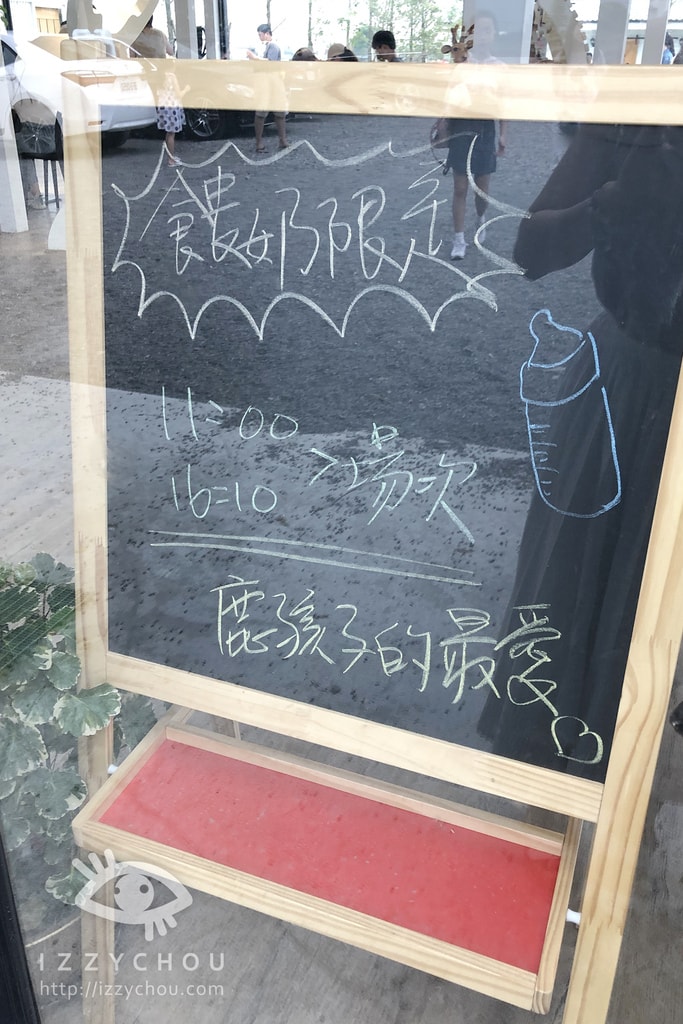 餵奶限定
11:00
16:10 >場次
鹿孩子的最愛♡
IZZYCHOU
http://izzychou.com